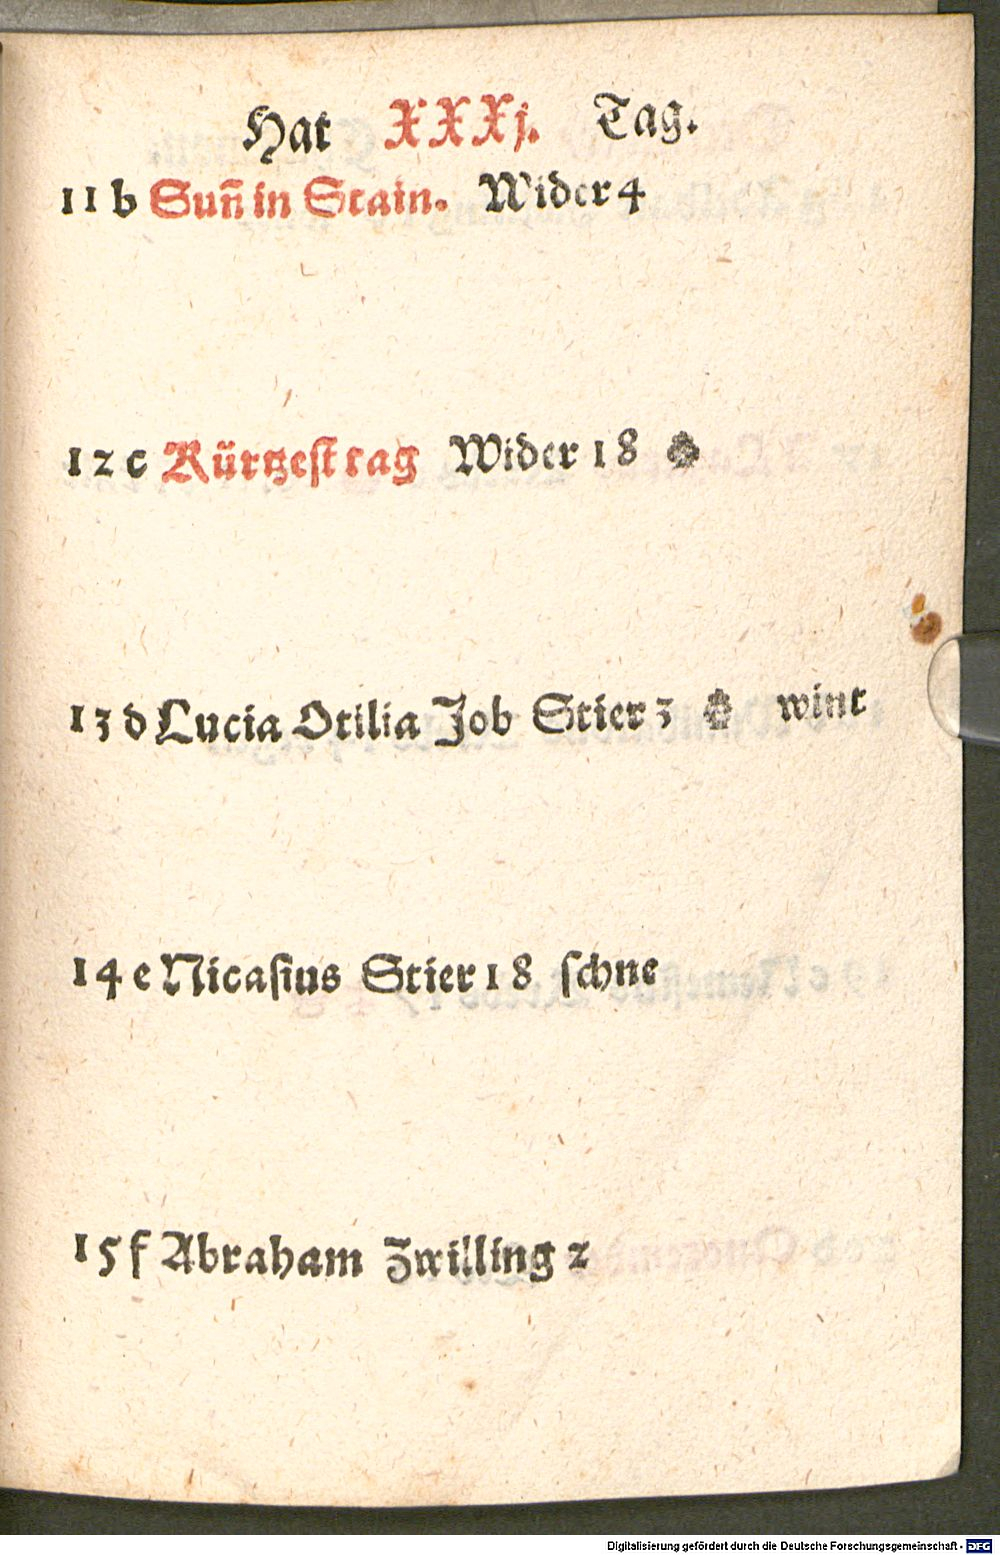 Hat XXXj. Tag.
11 b Suñ in Stain. Wider 4
12 c Kürtzest tag Wider 18
13 d Lucia Otilia Job Stier 3 wint
14 e Nicasius Stier 18 schne
15 f Abraham Zwilling 2
Digitalisierung gefördert durch die Deutsche Forschungsgemeinschaft - DFG